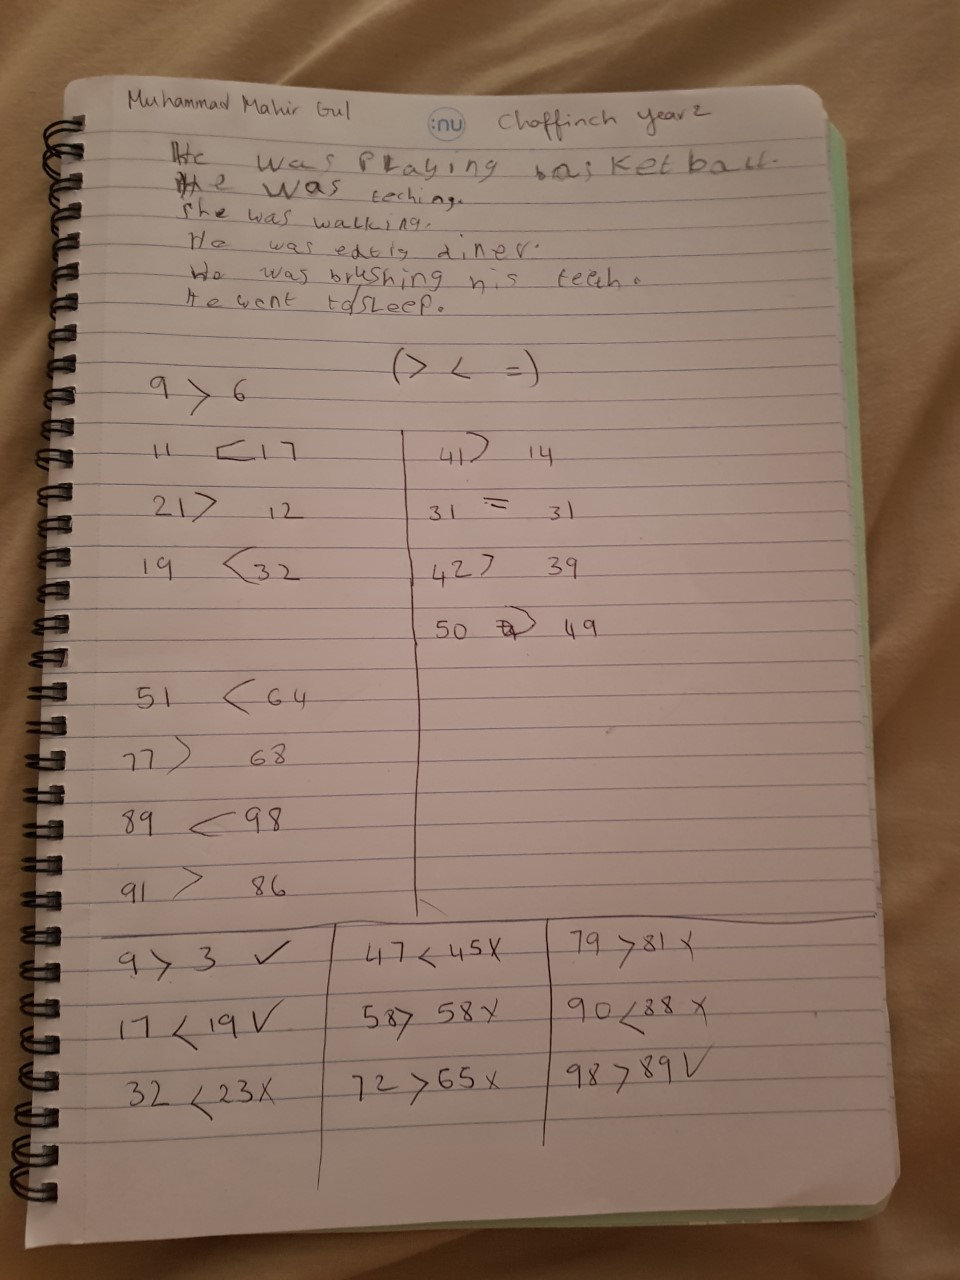 Muhammad Mahir Gul
:nu
Chaffinch Year 2
He was Playing basketball.
He was teching.
She was walking.
He was eatig diner.
He was brushing his teeh.
He went to sleep.
(> < =)
9 > 6
11 < 17
21 > 12
19 < 32
41 > 14
31 = 31
42 > 39
50 > 49
51 < 64
77 > 68
89 < 98
91 > 86
9 > 3 ✓
17 < 19 ✓
32 < 23 x
47 < 45 x
58 > 58 x
72 > 65 x
79 > 81 x
90 < 88 x
98 > 89 ✓